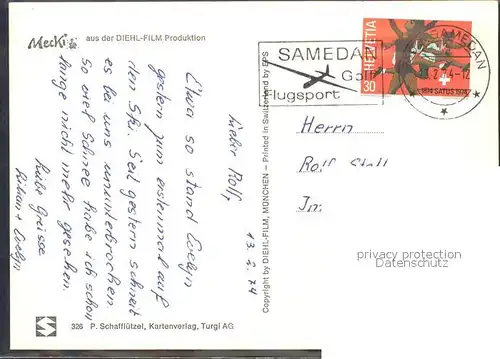 Mecki
aus der DIEHL-FILM Produktion
Lieber Rolf,
Etwa so stand Evelyn
gestern zum erstenmal auf
den Ski. Seit gestern schneit
es bei uns ununterbrochen
so viel Schnee habe ich schon
lange nicht mehr gesehen.
Liebe Grüsse
+ Evelyn
13. 2. 74
326 P. Schafflützel, Kartenverlag, Turgi AG
Copyright by DIEHL-FILM, MÜNCHEN – Printed in Switzerland by EPS
SAMEDAN
Golf
Flugsport
HELVETIA
30
1874 SATUS 1974
SAMEDAN
Herrn
Rolf
In
privacy protection
AnsichtskartenVersand.com